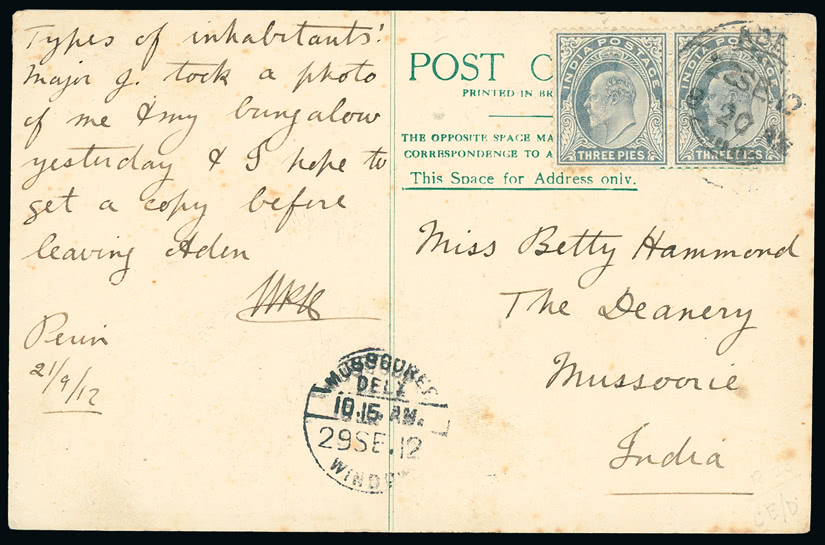 Types of inhabitants!
Major J. took a photo
of me & my bungalow
yesterday & I hope to
get a copy before
leaving Aden
Perim
21/9/12
POST C
PRINTED IN BR
THE OPPOSITE SPACE MA
CORRESPONDENCE TO A
This Space for Address only.
INDIA POSTAGE
THREE PIES
INDIA POSTAGE
THREE PIES
ADE
SE 12
Miss Betty Hammond
The Deanery
Mussoorie
India
MUSSOOREE
DELY
10.15 AM.
29 SE. 12
WINDOW